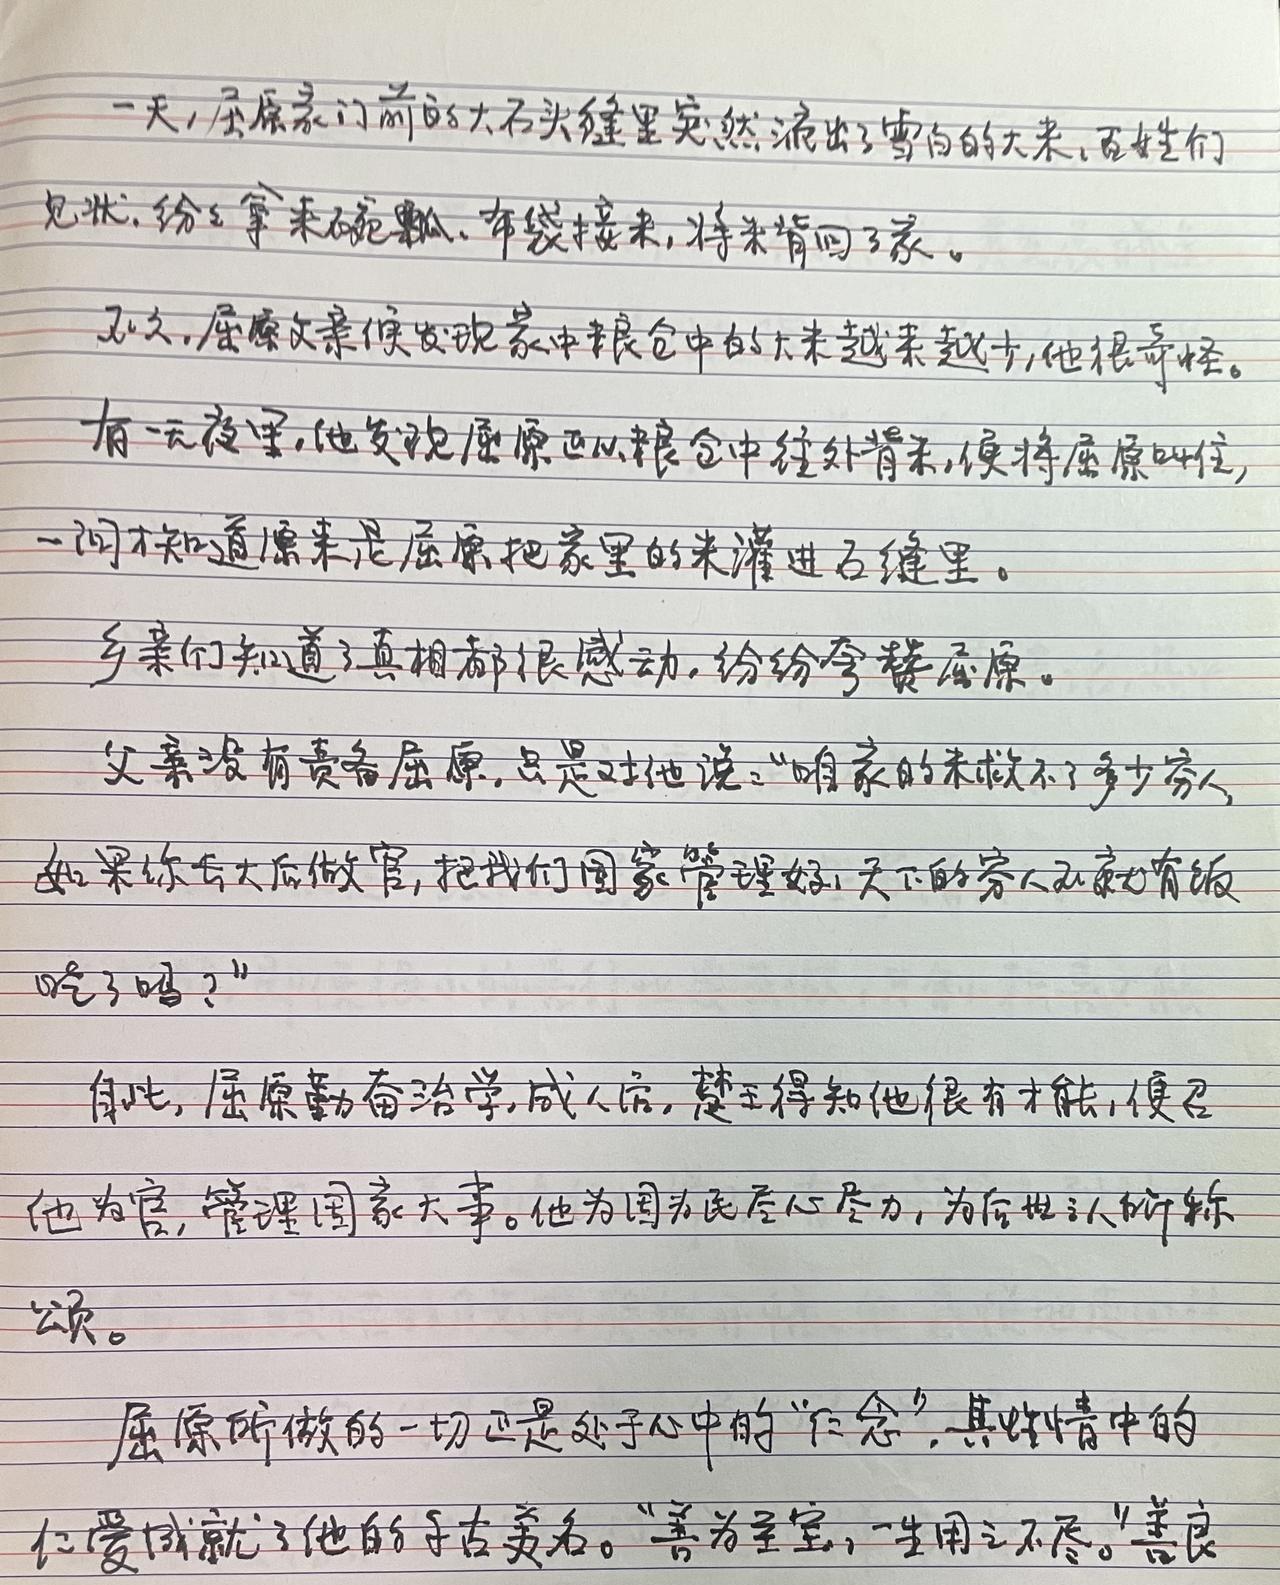 一天，屈原家门前的大石头缝里突然流出了雪白的大米，百姓们
见状，纷纷拿来碗瓢、布袋接米，将米背回了家。
不久，屈原父亲便发现家中粮仓中的大米越来越少，他很奇怪。
有一天夜里，他发现屈原正从粮仓中往外背米，便将屈原叫住，
一问才知道原来是屈原把家里的米灌进石缝里。
乡亲们知道了真相都很感动，纷纷夸赞屈原。
父亲没有责备屈原，只是对他说：“咱家的米救不了多少穷人，
如果你长大后做官，把我们国家管理好，天下的穷人不就有饭
吃了吗？”
自此，屈原勤奋治学，成人后，楚王得知他很有才能，便召
他为官，管理国家大事。他为国为民尽心尽力，为后世之人所称
颂。
屈原所做的一切正是处于心中的“仁念”，其性情中的
仁爱成就了他的千古美名。“善为至宝，一生用之不尽。”善良